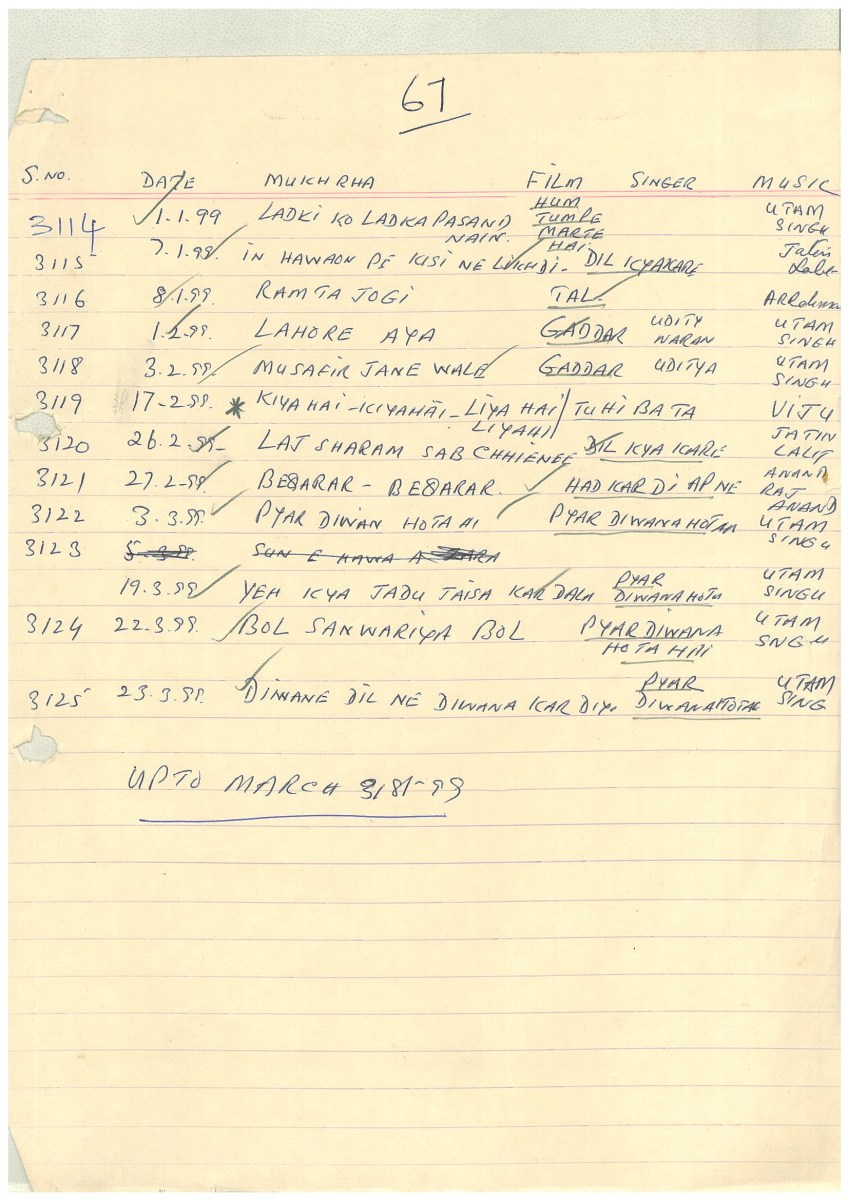 67
S.NO. DATE MUKHRHA FILM SINGER MUSIC
3114 1.1.99 LADKI KO LADKA PASAND NAIN. HUM TUMPE MARTE HAI. UTAM SINGH
3115 7.1.99. IN HAWAON PE KISI NE LIKHDI. DIL KYAKARE Jatin
3116 8.1.99. RAMTA JOGI TAL. ARRehman
3117 1.2.99. LAHORE AYA GADDAR UDITY NARAN UTAM SINGH
3118 3.2.99. MUSAFIR JANE WALE GADDAR UDITYA UTAM SINGH
3119 17-2.99. * KIYA HAI - KIYAHAI - LIYA HAI LIYAHI TUHI BATA VIJU
3120 26.2.99- LAJ SHARAM SAB CHHIENEE DIL KYA KARE JATIN LALIT
3121 27.2-99 BEQARAR - BEQARAR. HAD KAR DI APNE ANAND RAJ ANAND
3122 3.3.99. PYAR DIWAN HOTA HI PYAR DIWANA HOTAA UTAM SINGH
3123 5.3.99. SUN E HAWA A ZARA
19.3.99 YEH KYA JADU JAISA KAR DALA PYAR DIWANA HOTA UTAM SINGH
3124 22.3.99. BOL SANWARIYA BOL PYAR DIWANA HOTA HAI UTAM SNGH
3125 23.3.99. DIWANE DIL NE DIWANA KAR DIYA PYAR DIWANA HOTAH UTAM SING
UPTO MARCH 31st-99